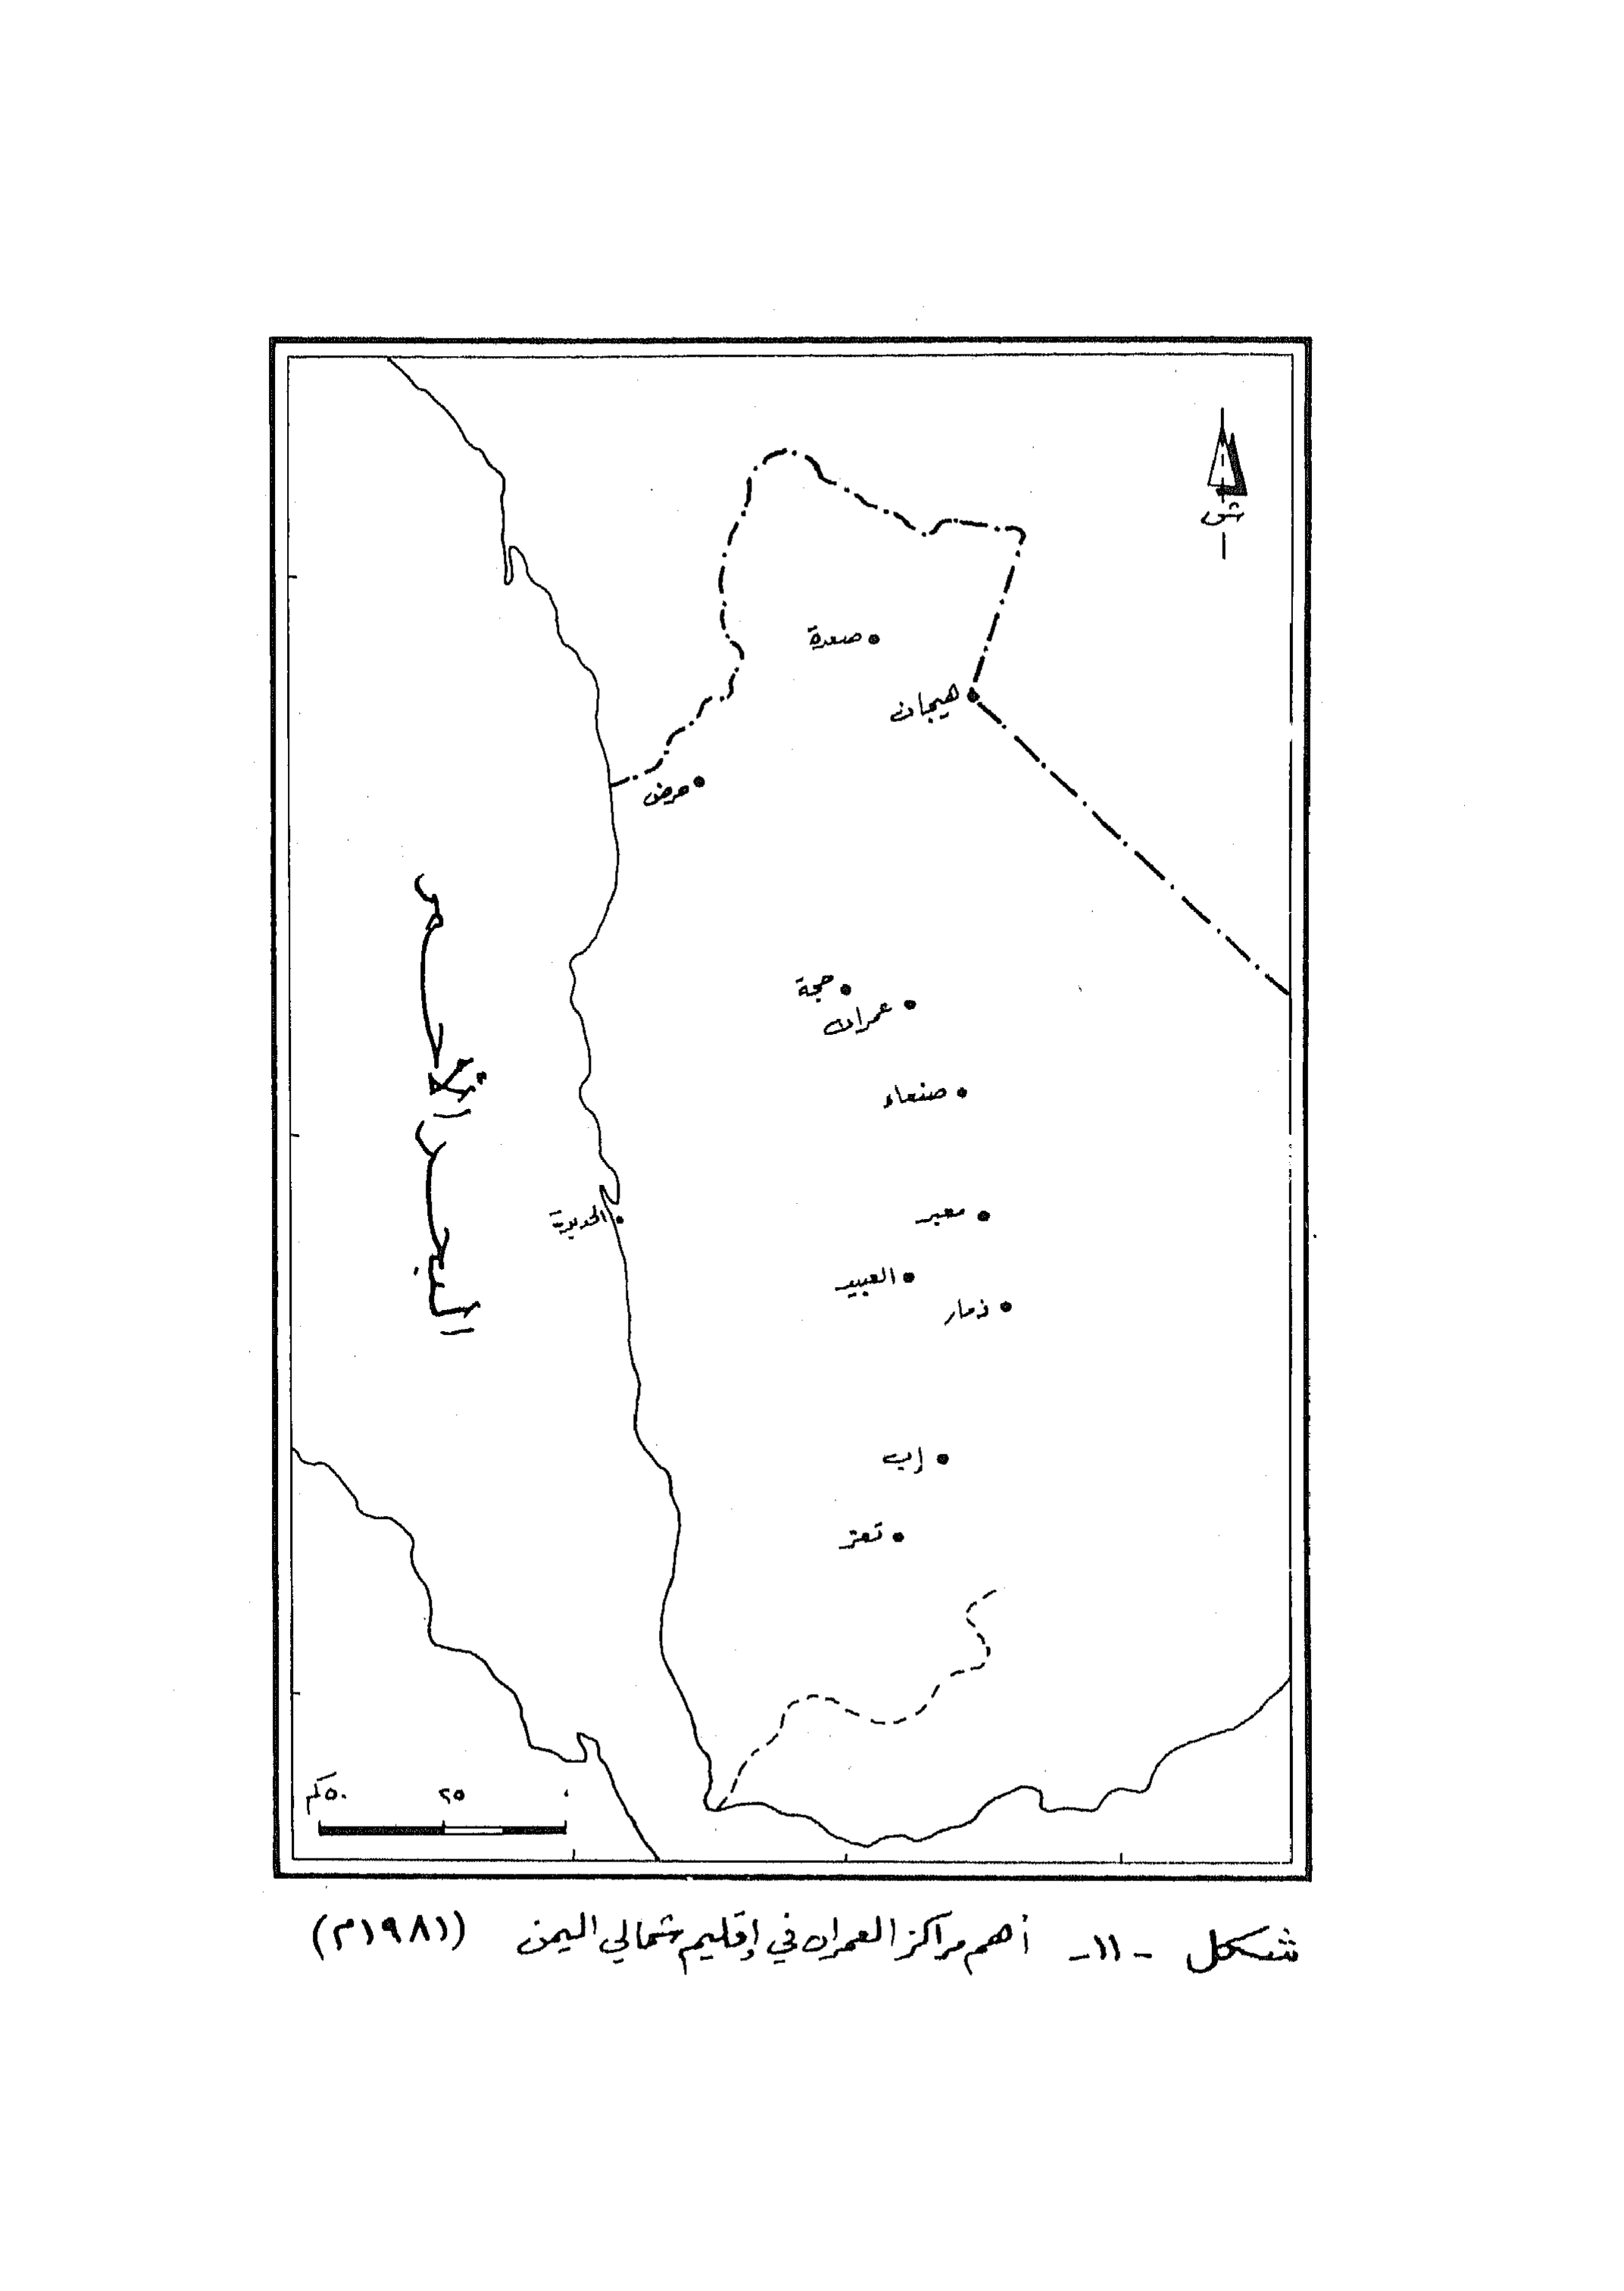 ش
صعدة
هيجان
حرض
حجة
عمران
صنعاء
معبر
الحديدة
العبيد
ذمار
إب
تعز
البحر الأحمر
٥٠كم ٢٥ ٠
شكل -١١- أهم مراكز العمران في إقليم شمالي اليمن (١٩٨١م)